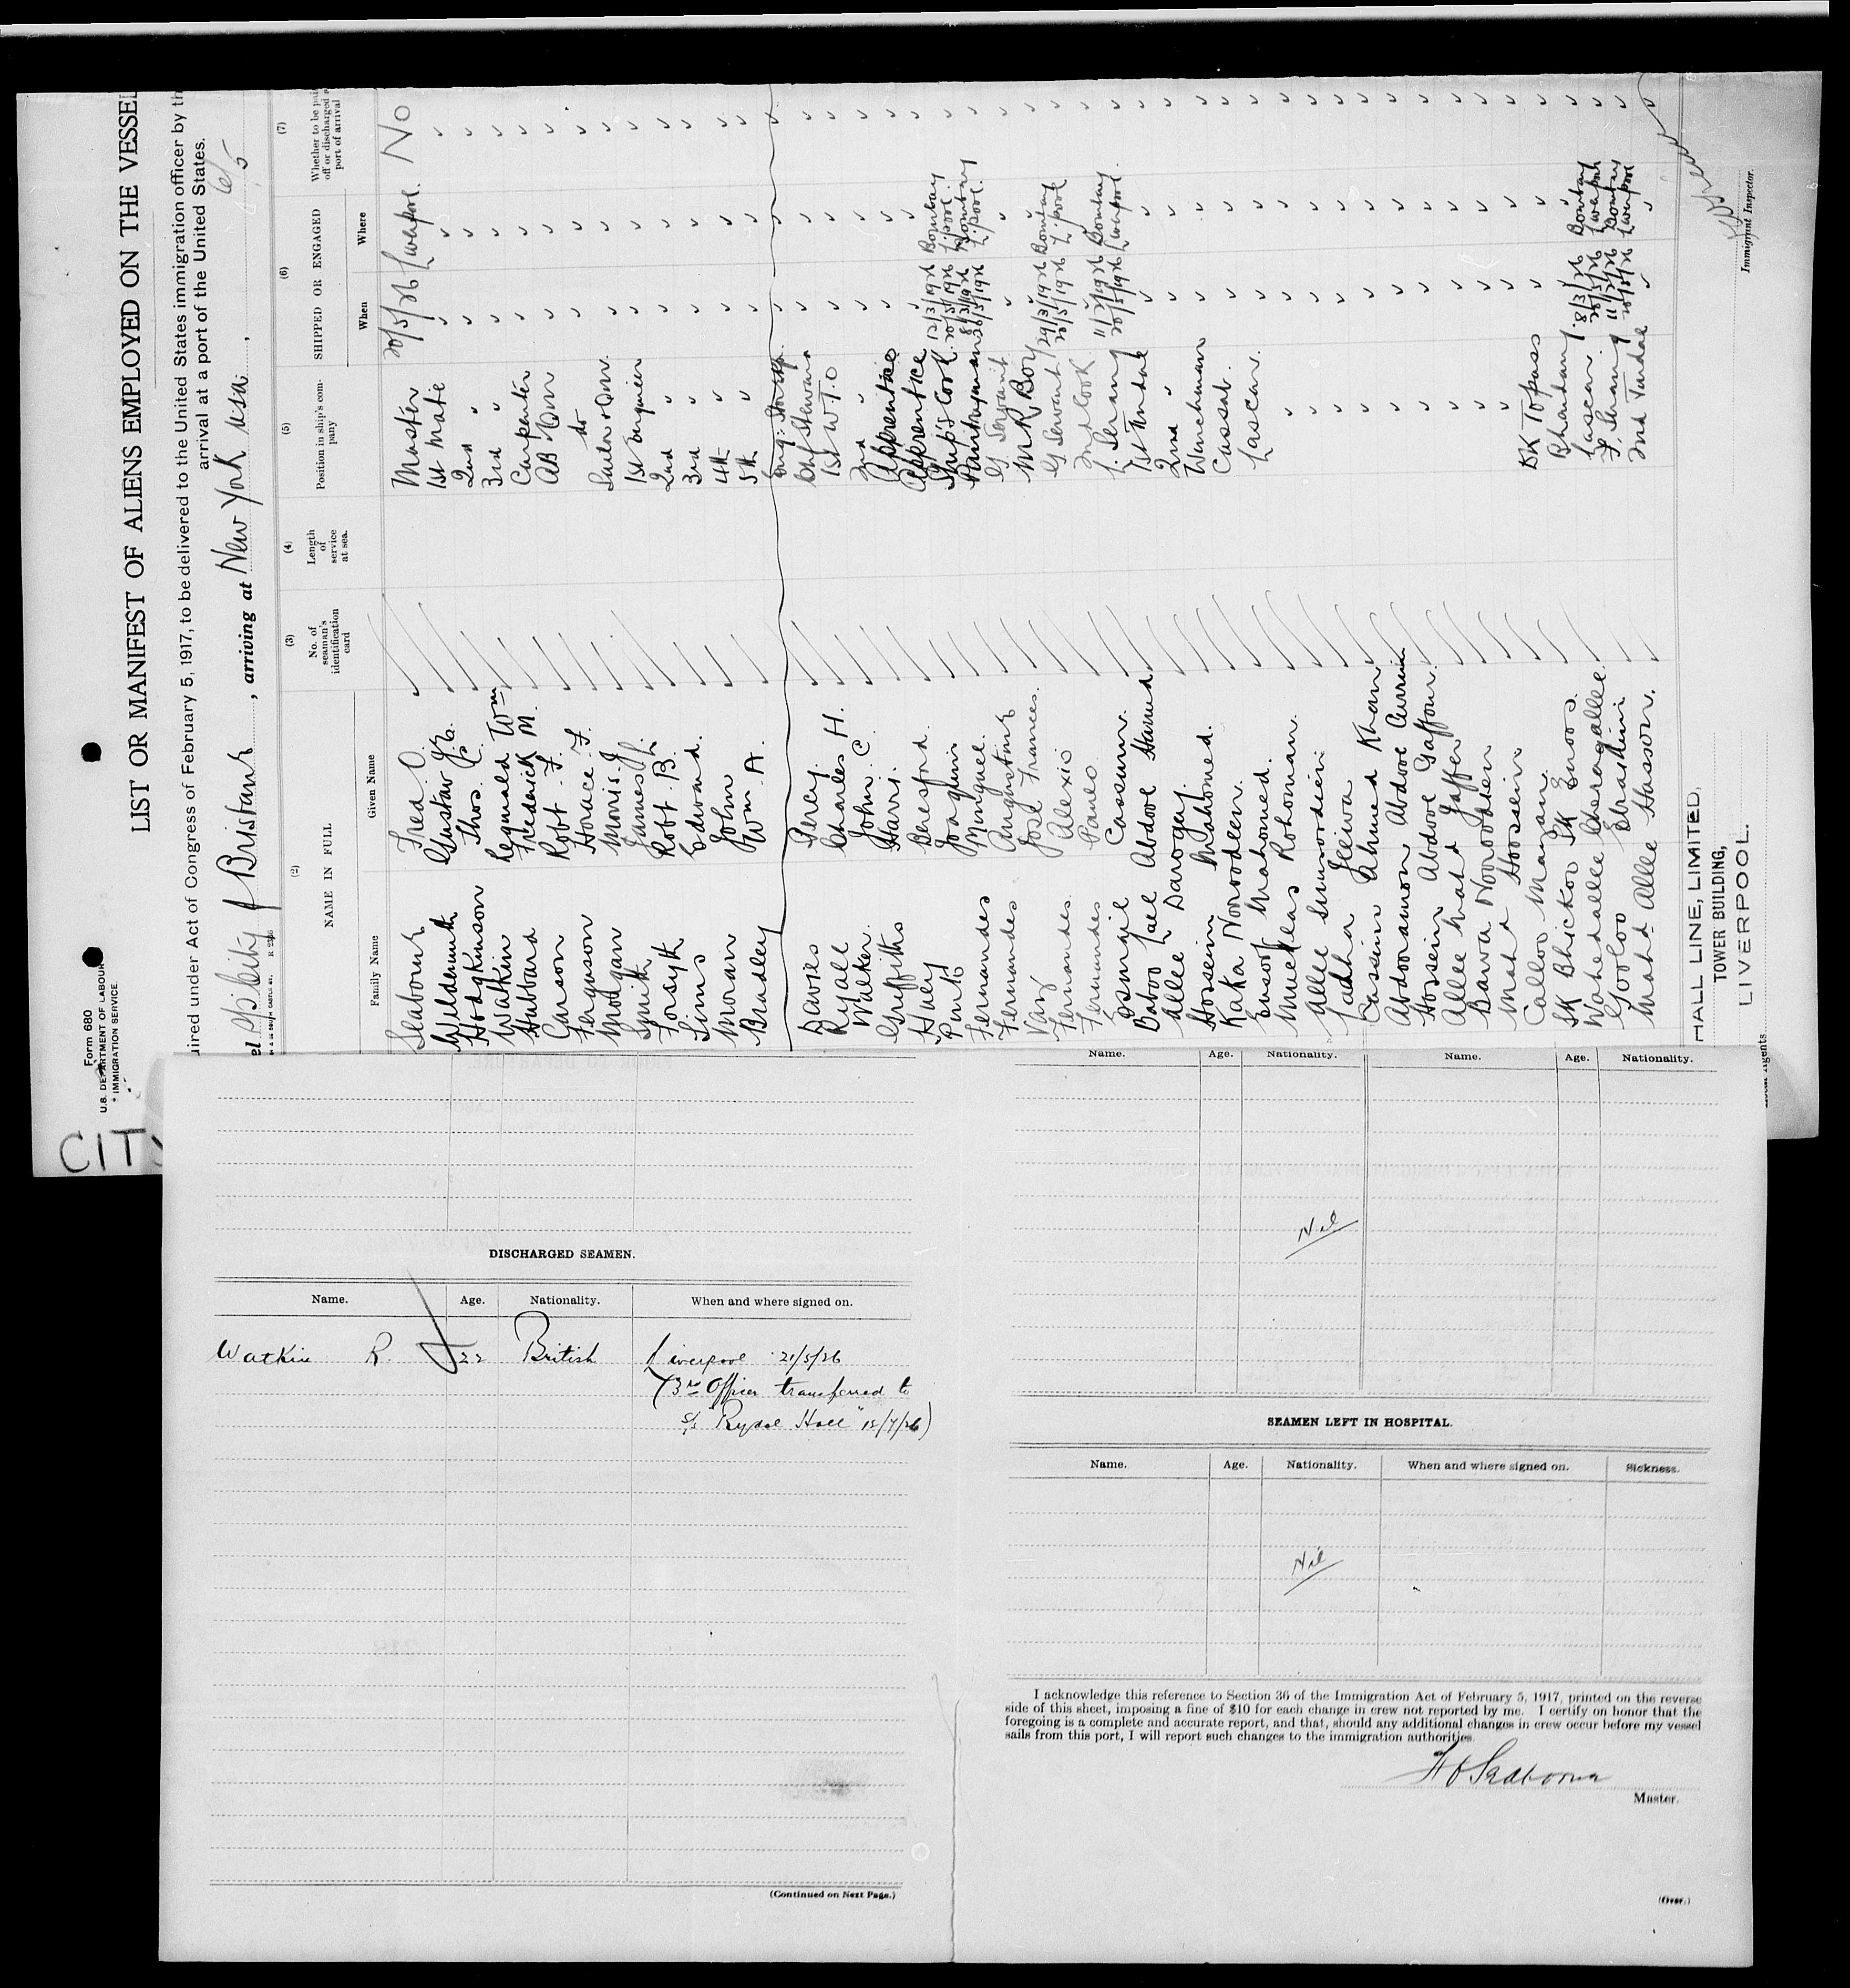 Form 680
U.S. DEPARTMENT OF LABOUR
IMMIGRATION SERVICE
CITY
LIST OR MANIFEST OF ALIENS EMPLOYED ON THE VESSEL
uired under Act of Congress of February 5, 1917, to be delivered to the United States immigration officer by th
arrival at a port of the United States.
el City of Brisbane, arriving at New York
(2) (3) (4) (5) (6) (7)
NAME IN FULL
Family Name Given Name
No. of seaman's identification card
Length of service at sea.
Position in ship's company
SHIPPED OR ENGAGED
When Where
Whether to be pai off or discharged a port of arrival
Seabourne Fred O. Master 20/5/26 Liverpool. No
Gustav 1st Mate
Hodgkinson Thos. C. 2nd "
Watkin Reginald Wm 3rd "
Hubbard Frederick M. Carpenter
Carson Robt. F. AB
Ferguson Horace F. do
Morgan Morris J.
Smith James L. 1st Engineer
Forsyth Robt. B. 2nd "
Sims Edward. 3rd "
Moran John 4th "
Bradley Wm. A. 5th "
Davies Percy. Chf Steward
Ryall Charles H. 1st W.T.O
Walker. John C. 2nd "
Griffiths Harri. Apprentice
Huley Beresford. Apprentice
Pinto Joaquim Ship's Cook 12/3/1926 Bombay 20/5/1926 L.pool.
Fernandes Minguel. Pantryman 8/3/1926 Bombay 20/5/1926 L.pool.
Fernandes Augustine G Servant
Vaz Jose Frances. M.R. Boy
Fernandes Alexio G Servant 29/3/1926 Bombay 20/5/1926 L.pool
Fernandes Paulo 2nd Cook
Ismail Cassum. 1. Serang 11/3/1926 Bombay 20/5/1926 Liverpool.
Baboo Lall Abdool Hamed 1st Tindal
Allee Darogey 2nd "
Hossein Mahomed. Winchman
Kaka Nooroodeen. Cassab.
Eusoof Mahomed. Lascar.
Rohoman.
Allee
Ladha Jeiwa
Cassim Ahmed Khan
Abdoraman Abdool Currim
Hossein Abdool Gaffour.
Allee Mahd Jaffer
Bawa Nooroodeen
Mahd Hossein
Calloo Mangan. DK Topass
SK Bhickoo SK Enoos. Bhandary
Wahedallee Cheragallee. Lascar. 8/3/26 Bombay 20/5/26 Liverpool
Gooloo F. Serang 11/3/26 Bombay 20/5/26 Liverpool
Mahd Allee Hasson. 2nd Tindal
HALL LINE, LIMITED,
TOWER BUILDING,
LIVERPOOL.
Immigrant Inspector.
DISCHARGED SEAMEN.
Name. Age. Nationality. When and where signed on.
Watkin R. 22 British Liverpool 21/5/26
(3rd Officer transferred to
s/s "Rydal Hall" 15/7/26)
(Continued on Next Page.)
Name. Age. Nationality. Name. Age. Nationality.
Nil
SEAMEN LEFT IN HOSPITAL.
Name. Age. Nationality. When and where signed on. Sickness.
Nil
I acknowledge this reference to Section 36 of the Immigration Act of February 5, 1917, printed on the reverse
side of this sheet, imposing a fine of $10 for each change in crew not reported by me. I certify on honor that the
foregoing is a complete and accurate report, and that, should any additional changes in crew occur before my vessel
sails from this port, I will report such changes to the immigration authorities.
F O Seabourne
Master.
(Over.)